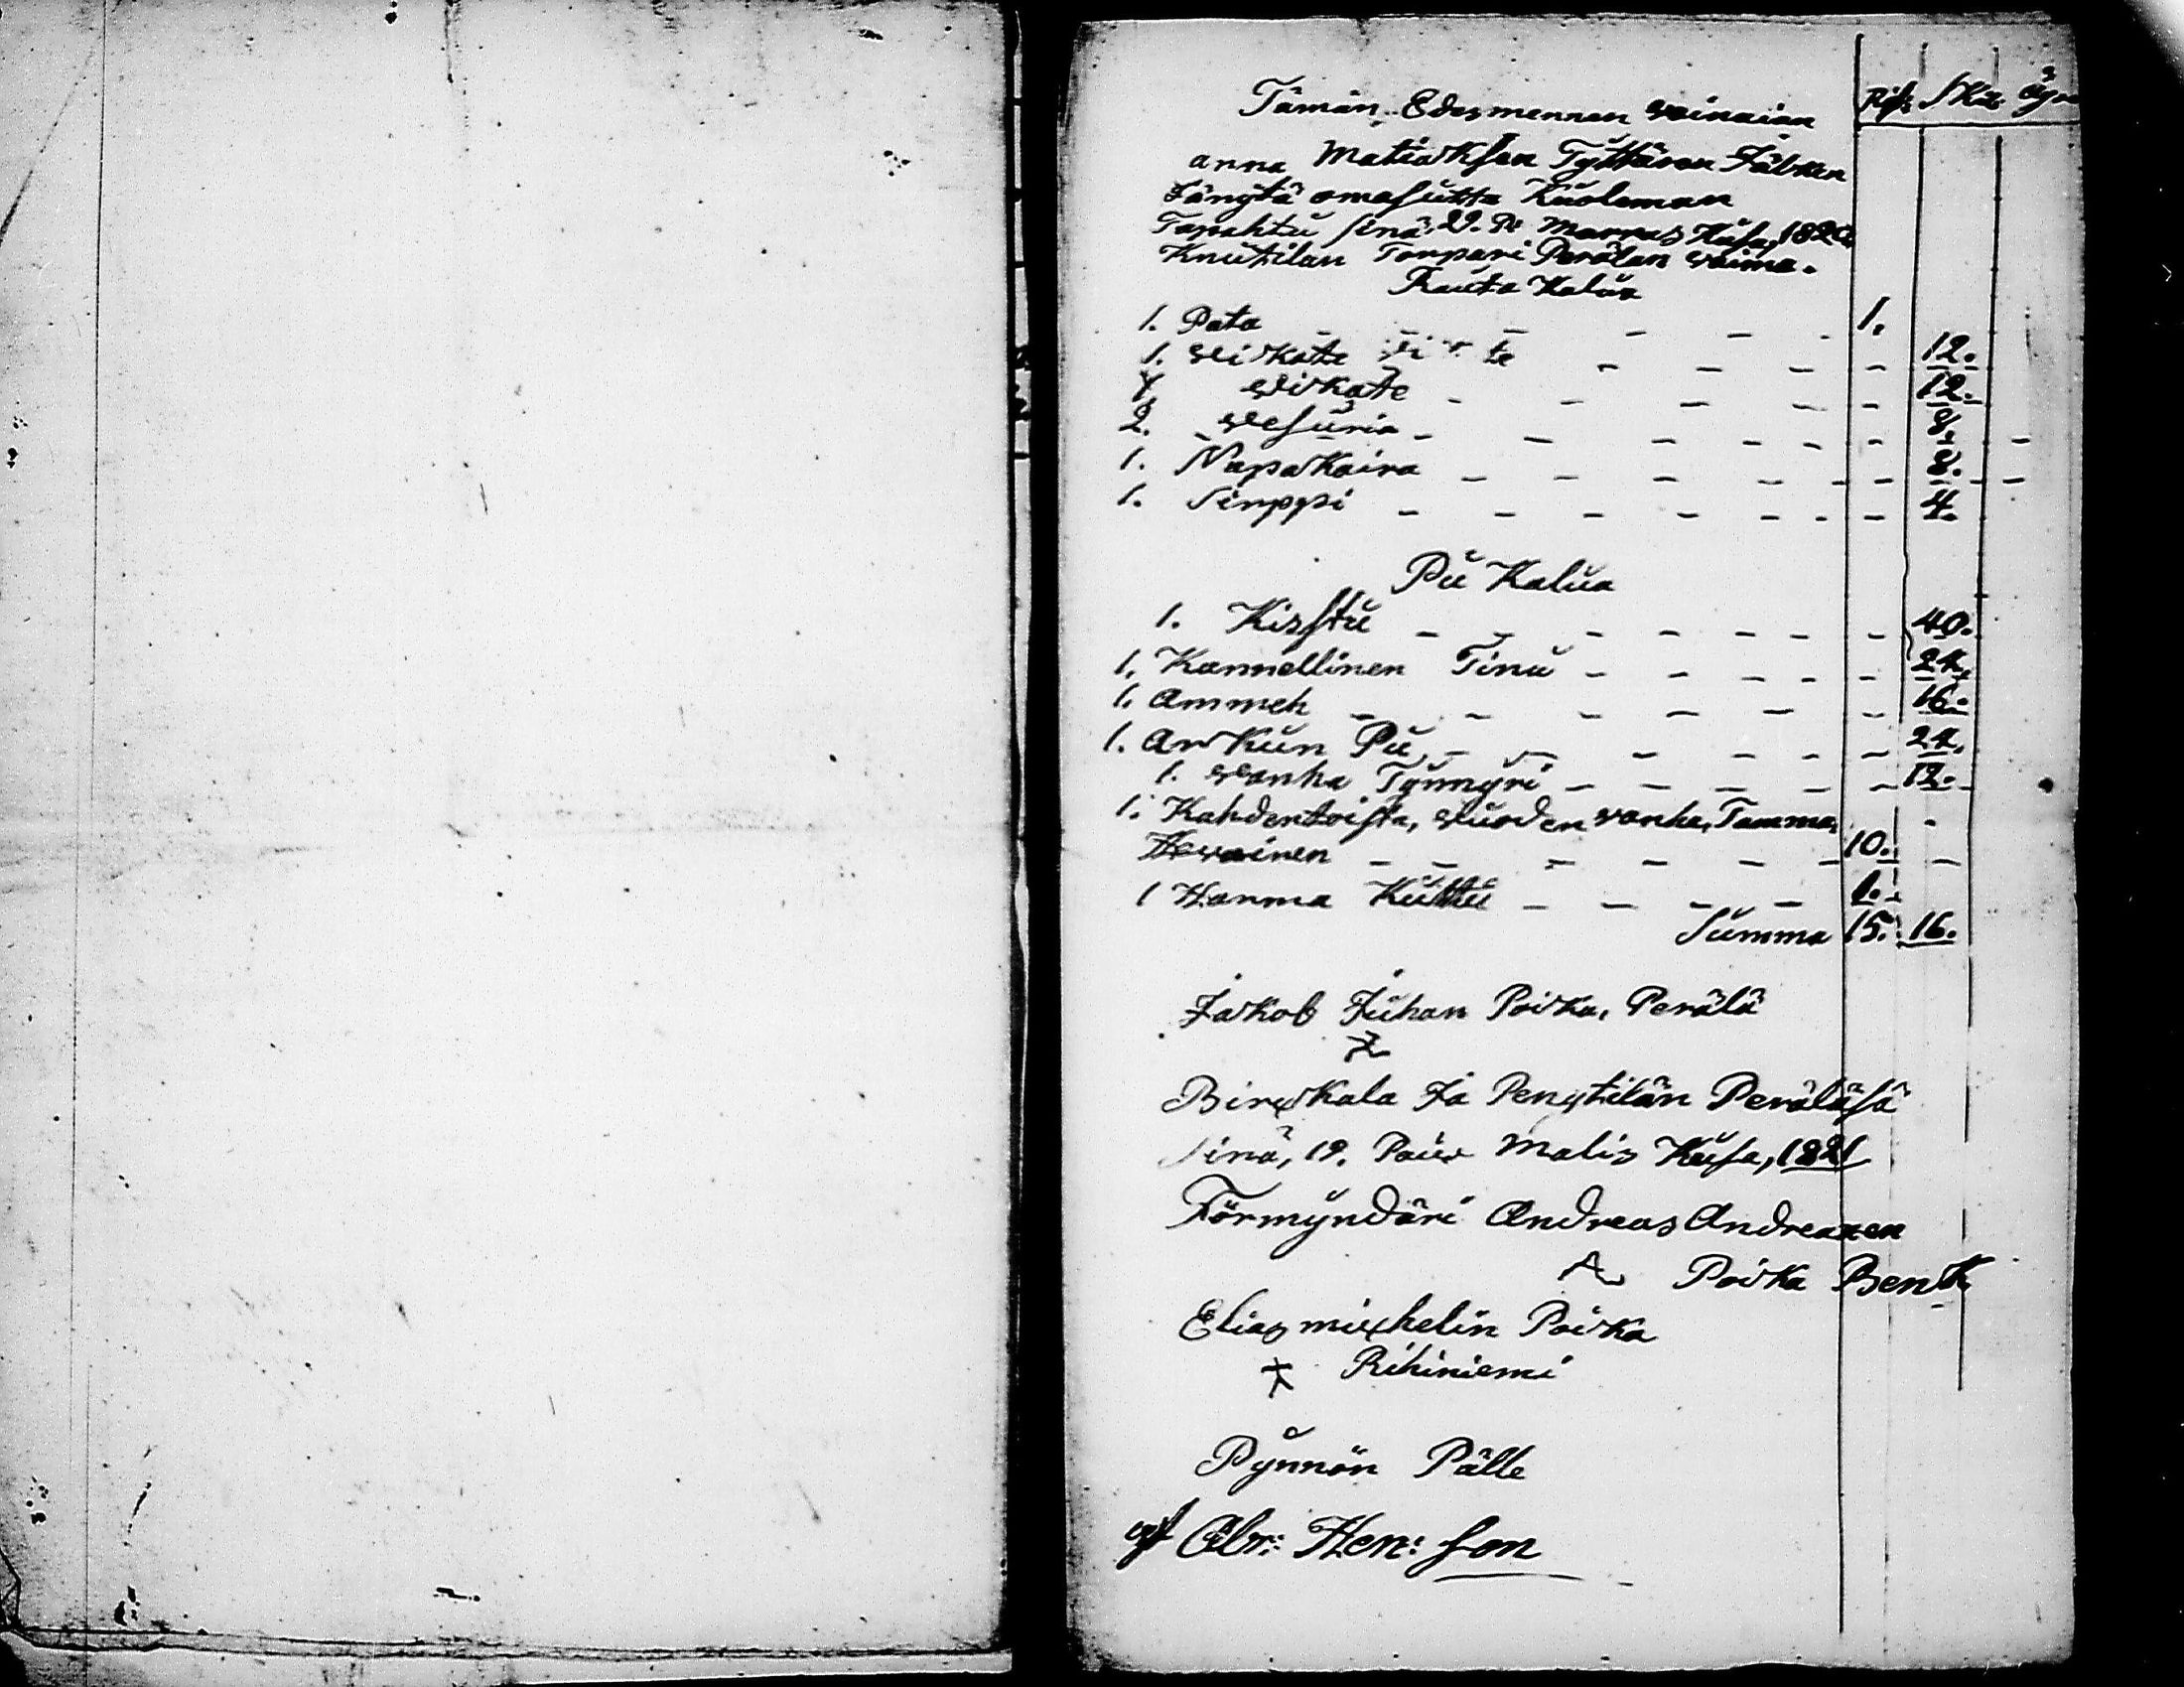 Rip: Skil: Öyri
Tämän, Edesmennen wainaian
anna Matiaksen Tyttären Jälken
Jänytä omasutta Kuoleman
Tapahtu sinä 29. Pä Marras Kusa, 1820
Knutilan Torpari Perälan waimo.
Rauta Kalua
1. Pata - - - - - 1.
1. weikate - - - - 12.
1 wikate - - - - - 12.
2. wesuria - - - - - - 8. -
1. Napakaira - - - - - - 8. -
1. Sirppi - - - - - - - 4.
Pu Kalua
1. Kisstu - - - - - - - 40.
1. Kannellinen Tinu - - - - - 24.
1. Ammeh - - - - - - 16.
1. Arkun Pu - - - - - - 24.
1. wanha Tynnyri - - - - - - 12.
1. Kahdentoista, wuoden wanha, Tamma,
Hewoinen - - - - - - 10. -
1 Harma Kuttu - - - - 1.
Summa 15. 16.
Jakob Juhan Poika, Perälä
Birckala Ja Penstilän Peräläsä
Sinä, 19. Päiw Malis Kusa, 1821
Förmyndäri Andreas Andreaxen
Poika Bentt
Elias michelin Poika
Rihiniemi
Pynnön Pälle
Abr: Hen: son